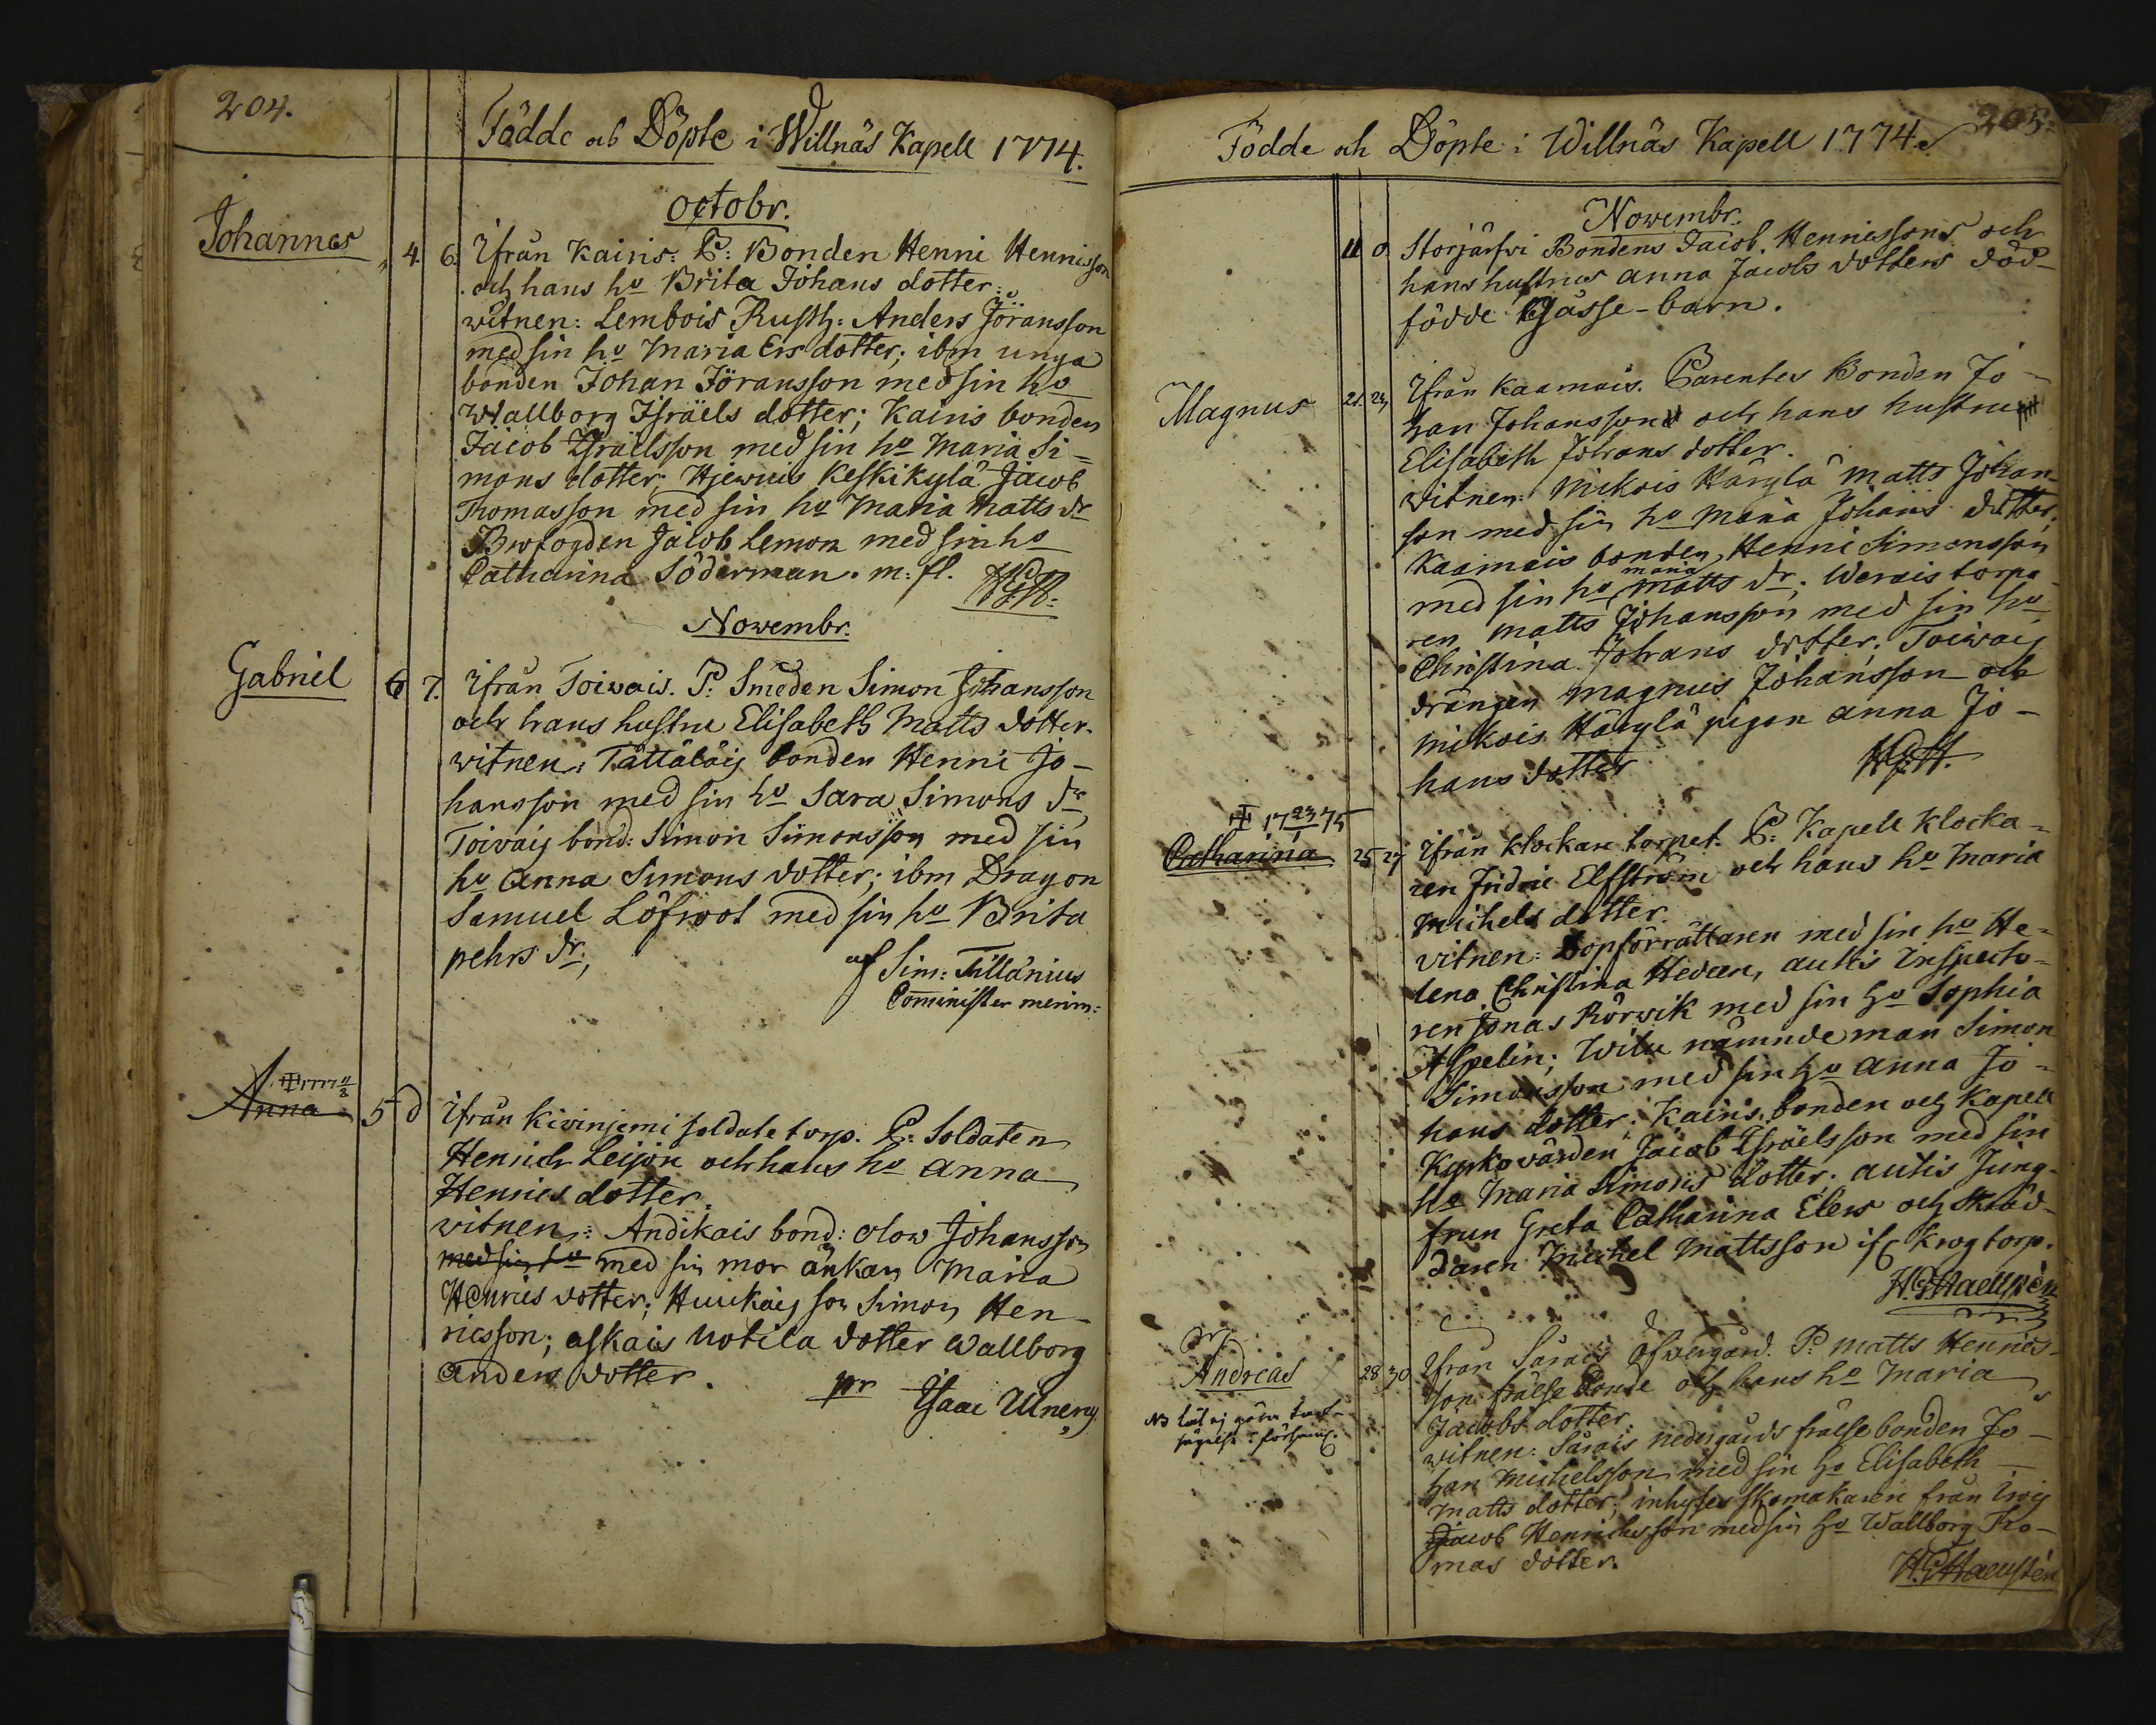 204.
Födde och Döpte i Willnäs Kapell 1774.
octobr.
Johannes 4. 6. Ifrån Kairis: P: Bonden Henric Henricsson
och hans ho Brita Johans dotter:
witnen: Lembois Rusth: Anders Jöransson
med sin ho Maria Ers dotter; ibm unga
bonden Johan Jöransson med sin ho
Wallborg Israëls dotter; Kairis bonden
Jacob Israëlsson med sin ho Maria Si=
mons dotter; Keskikylä Jacob
Thomasson med sin ho Maria Matts dr
Jacob Lemon med sin ho
Catharina Söderman. m: fl.
Novembr.
Gabriel 6 7. Ifrån Toiwais. P: Smeden Simon Johansson
och hans hustru Elisabeth Matts dotter.
witnen: bonden Henric Jo-
hansson med sin ho Sara Simons dr
Toivais bond: Simon Simonsson med sin
ho Anna Simons dotter; ibm Dragon
Samuel Löfroot med sin ho Brita
pehrs dr;
af Sim: Tillänius
Cominister
Anna 5 d Ifrån Kivinjemi soldate torp. P: Soldaten
Henrich Leijon och hans ho Anna
Henrics dotter.
witnen: Andikais bond: Olow Johansson
med sin ho med sin mor änkan Maria
Henrics dotter; son Simon Hen-
ricsson; askais Uotila dotter Wallborg
Anders dotter.
pr Isaac
205.
Födde och Döpte i Willnäs Kapell 1774.
Novembr.
11 0. Storjärfwi Bondens Jacob Henricssons och
hans hustrus Anna Jacobs dotters död-
födde Gåsse-barn.
Magnus 21. 24 Ifrån Kaamais. Parentes Bonden Jo-
han Johansson och hans hustru
Elisabeth Johans dotter.
witnen: Mikois Härylä Matts Johan-
son med sin ho Maria Johans dotter.
Kaamais bonden, Henric Simonsson
med sin ho maria Matts dr. torpa-
ren Matts Johansson med sin ho
Christina Johans dotter. Toiwais
drängen Magnus Johansson och
Mikois Härylä pigan Anna Jo-
hans dotter
Catharina 25 27 Ifrån Klockare torpet. P: Kapell Klocka=
ren Fridric Elfström och hans ho Maria
Michels dotter.
vitnen: Dopförrättaren med sin ho He=
lena Christina Hedeen, autis Inspecto=
ren Jonas Rörwik med sin ho Sophia
Aspelin; Wilu nämndeman Simon
Simonsson med sin ho Anna Jo=
hans dotter; Kairis bonden och Kapell
Kyrkovärden Jacob Israëlsson med sin
ho Maria Simons dotter; autis Jung-
frun Greta Catharina Elers och Skräd-
daren Michel Mattsson ifr. Krogtorp.
Andreas 28 30 Ifrån Särais öfwergård. P: Matts Henrics-
son frälse Bonde och hans ho Maria
Jacobs dotter.
witnen: Särais nedergårds frälse bonden Jo-
han Michelsson med sin ho Elisabeth
Matts dotter; inhyses skomakaren från
Jacob Henrichsson med sin ho Wallborg Tho-
mas dotter.